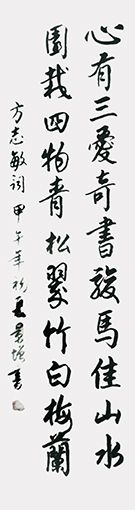 心有三爱奇書駿馬佳山水
園栽四物青松翠竹白梅蘭
方志敏词甲午年初夏景增書